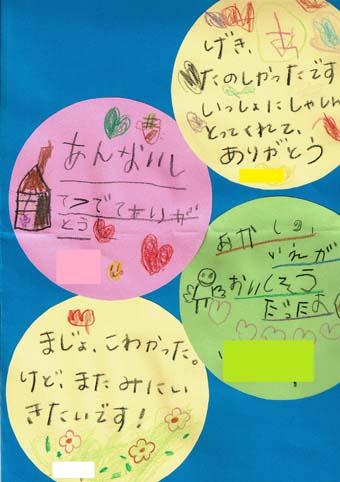 げき、
たのしかったです
いっしょにしゃしん
とってくれて、
ありがとう
あんないし
てつでてありが
とう
おかしの、
いえが
おいしそう
だったよ
まじょ、こわかった。
けど、またみにい
きたいです！